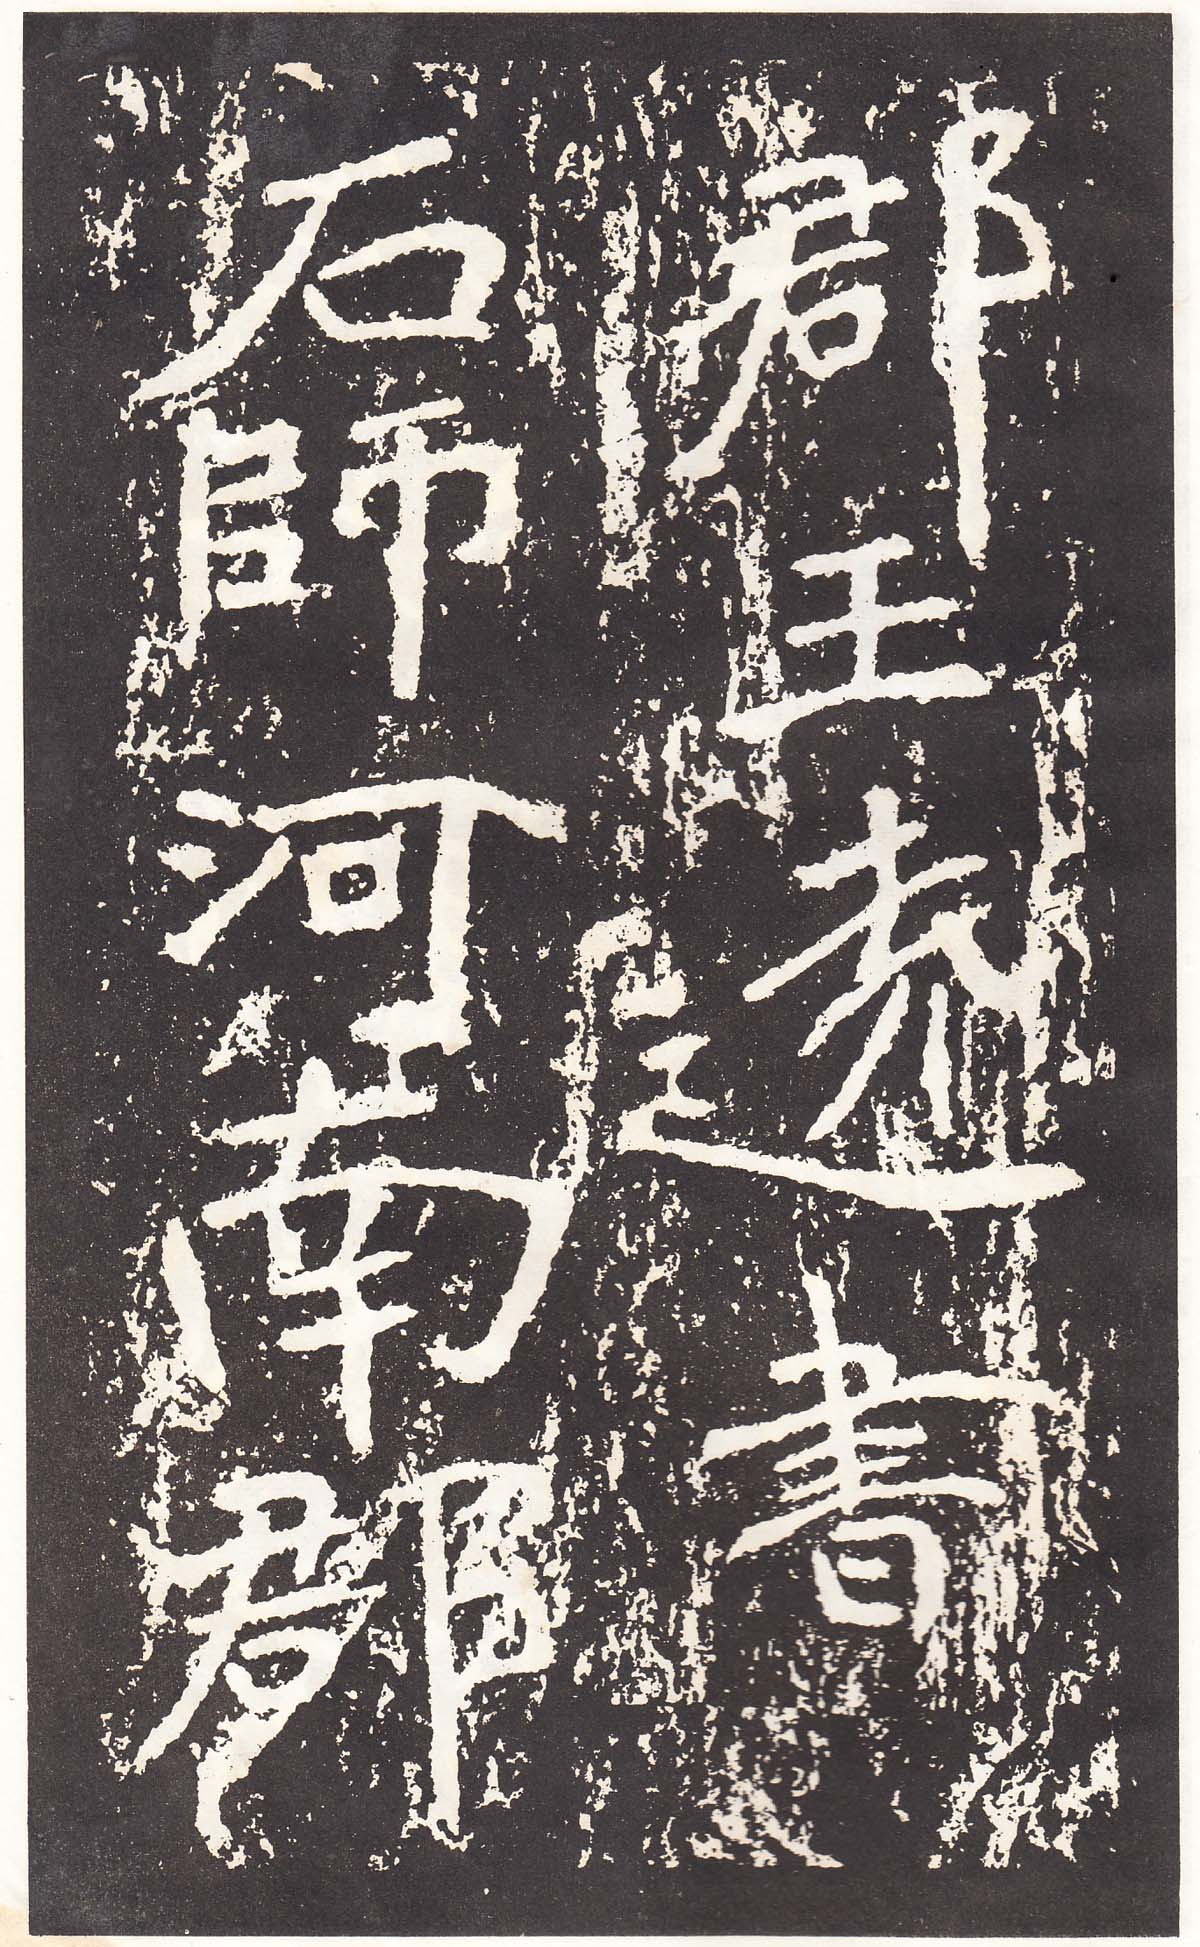 郡王遠書
石師河南郡